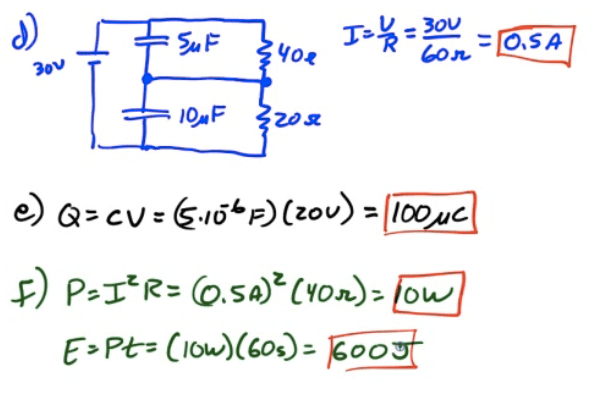 d)
30V
5μF
40Ω
10μF
20Ω
I=V/R=30V/60Ω=0.5A
e) Q=CV=(5·10⁻⁶F)(20V)=100μC
f) P=I²R=(0.5A)²(40Ω)=10W
E=Pt=(10W)(60s)=600J